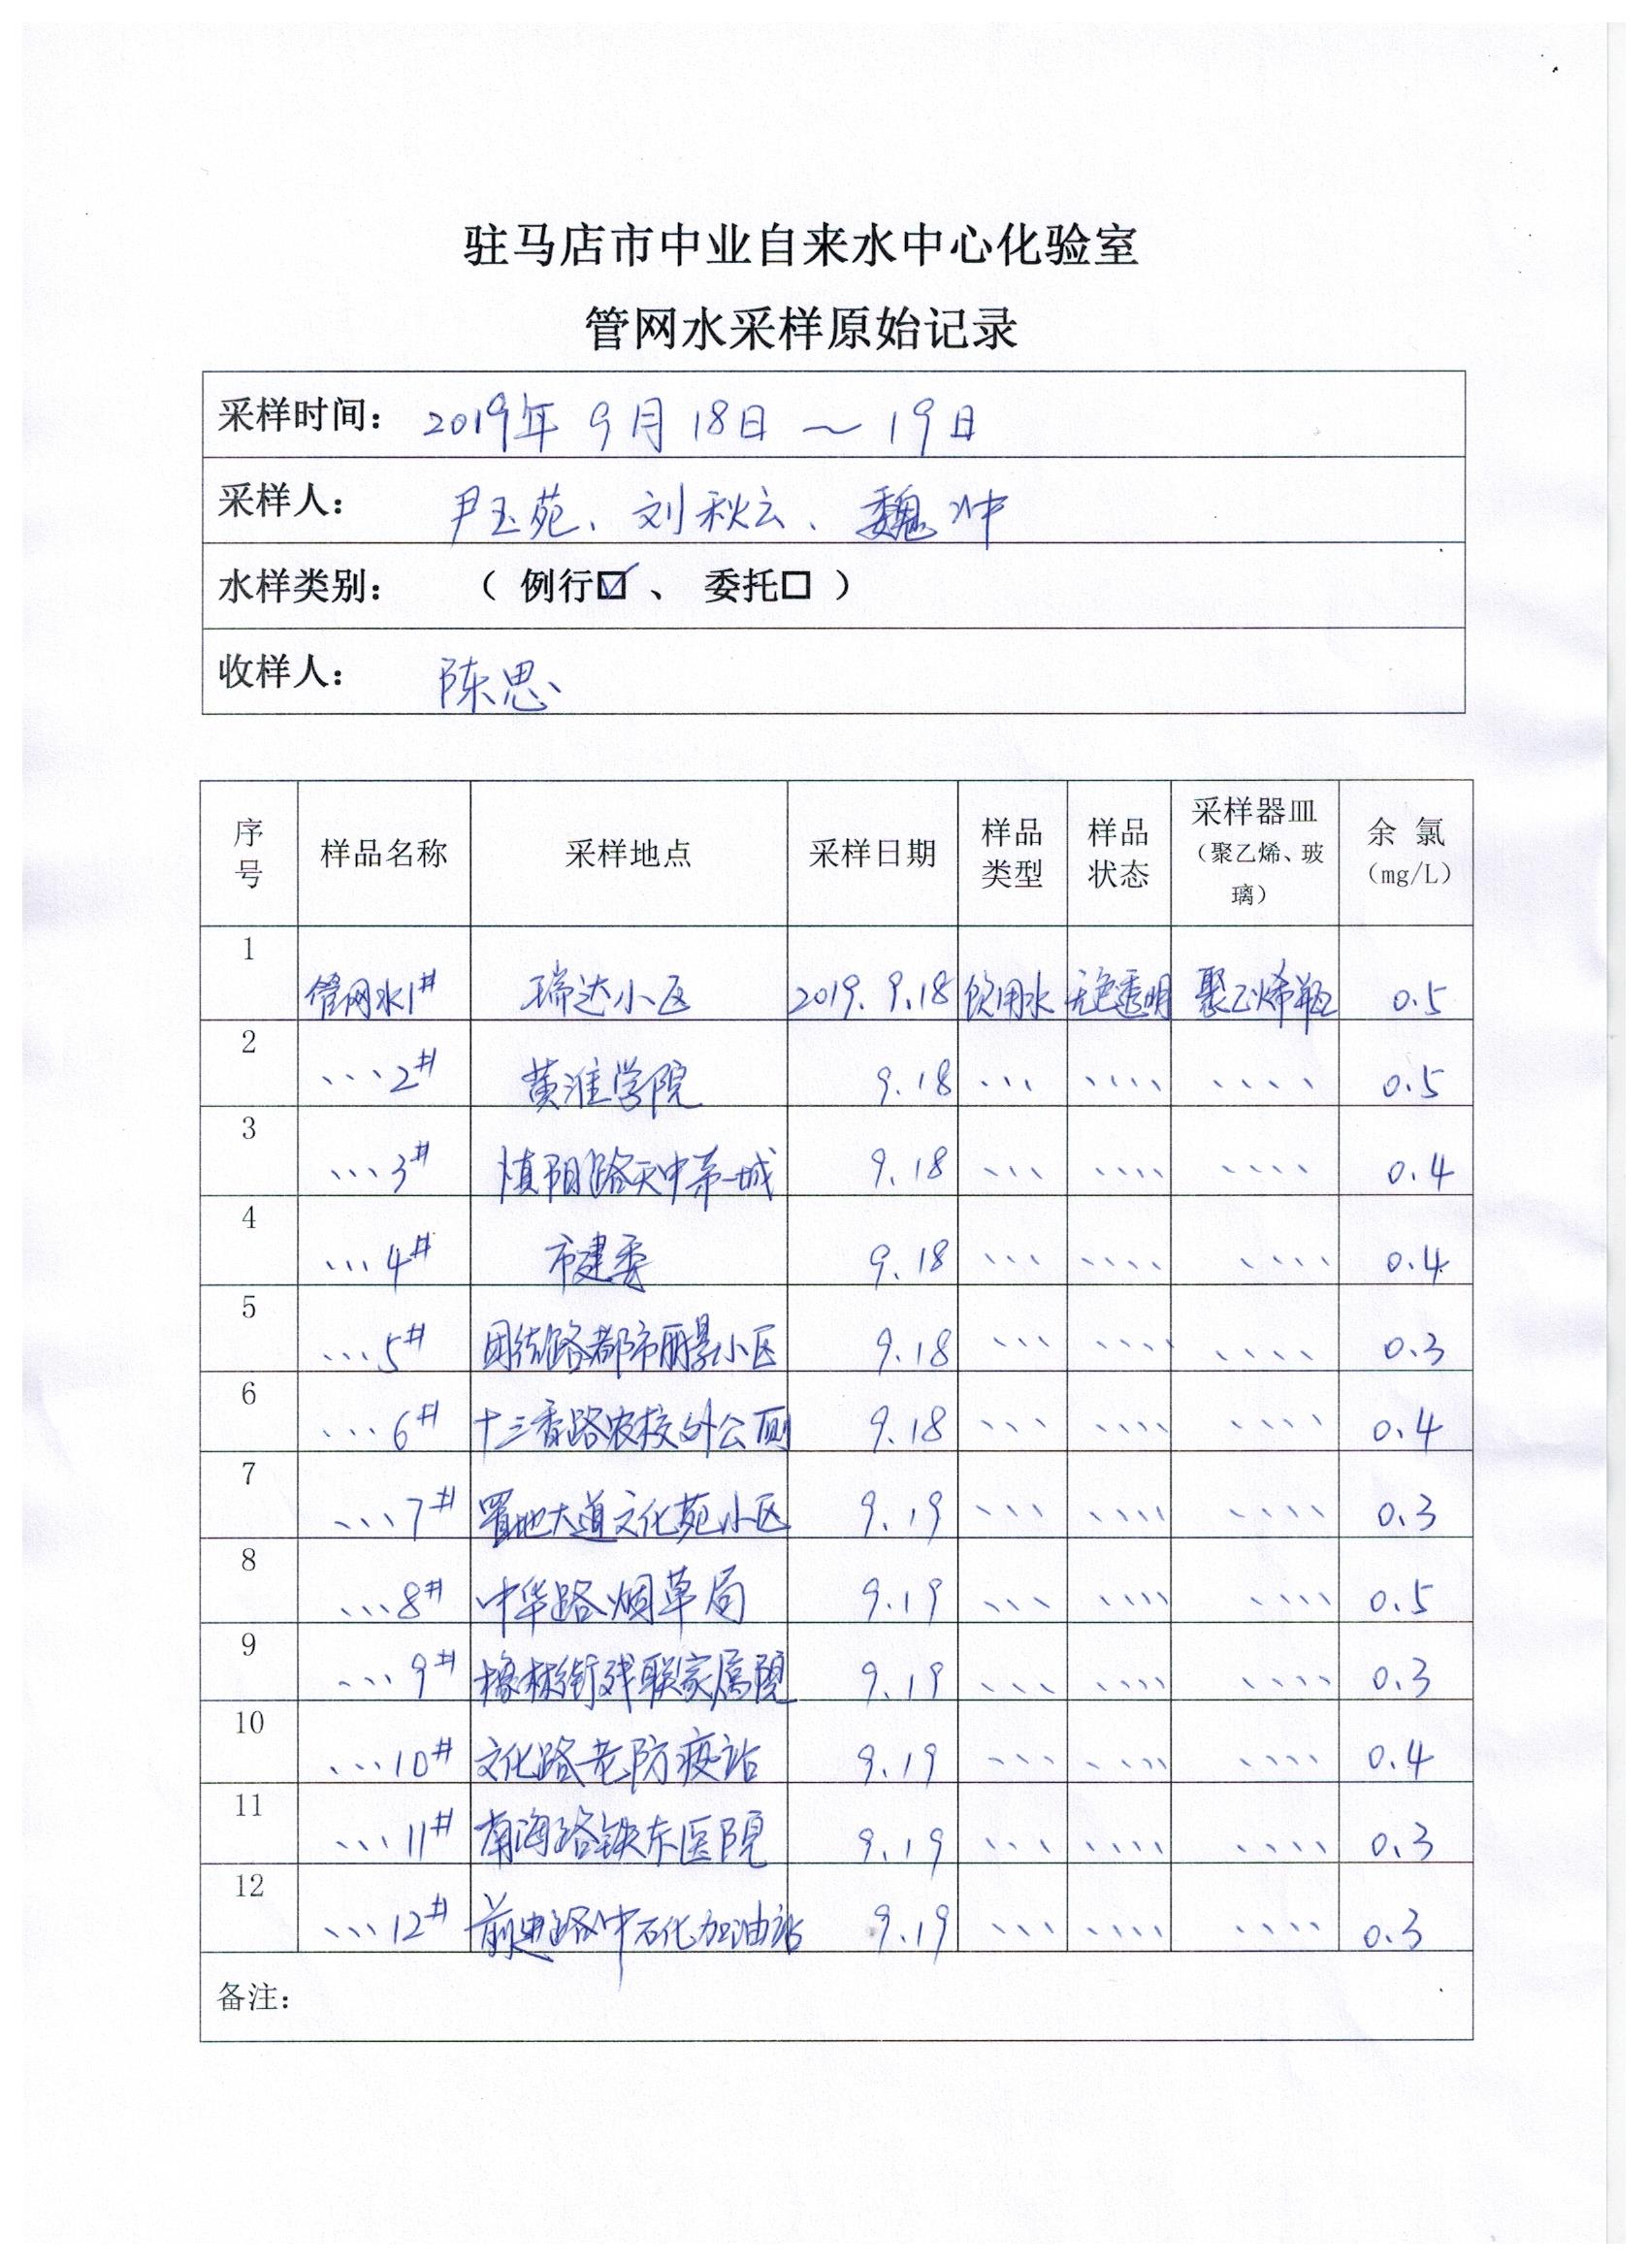 驻马店市中业自来水中心化验室
管网水采样原始记录
采样时间： 2019年 9月 18日 ～ 19日
采样人： 尹玉苑、刘秋云、魏冲
水样类别： （ 例行☑ 、 委托□ ）
收样人： 陈思
序号 样品名称 采样地点 采样日期 样品类型 样品状态 采样器皿（聚乙烯、玻璃） 余 氯（mg/L）
1 管网水1# 瑞达小区 2019.9.18 饮用水 无色透明 聚乙烯瓶 0.5
2 、、、2# 黄淮学院 9.18 、、、 、、、、 、、、、 0.5
3 、、、3# 慎阳路天中第一城 9.18 、、、 、、、、 、、、、 0.4
4 、、、4# 市建委 9.18 、、、 、、、、 、、、、 0.4
5 、、、5# 团结路都市丽景小区 9.18 、、、 、、、、 、、、、 0.3
6 、、、6# 十三香路农校外公厕 9.18 、、、 、、、、 、、、、 0.4
7 、、、7# 置地大道文化苑小区 9.19 、、、 、、、、 、、、、 0.3
8 、、、8# 中华路烟草局 9.19 、、、 、、、、 、、、、 0.5
9 、、、9# 橡林街残联家属院 9.19 、、、 、、、、 、、、、 0.3
10 、、、10# 文化路老防疫站 9.19 、、、 、、、、 、、、、 0.4
11 、、、11# 南海路铁东医院 9.19 、、、 、、、、 、、、、 0.3
12 、、、12# 前进路中石化加油站 9.19 、、、 、、、、 、、、、 0.3
备注：